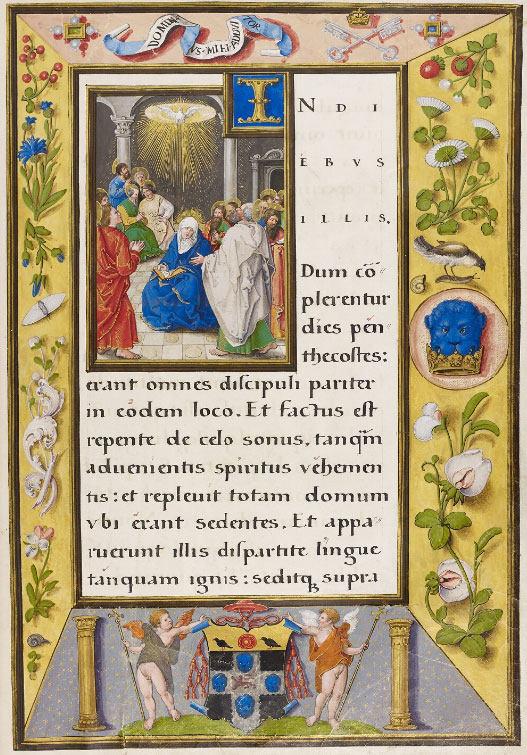 DOMINVS MIHI
IN DI
ÉBVS
ILLIS.
Dum cō
plerentur
dies pen
thecostes:
erant omnes discipuli pariter
in éodem loco. Et factus est
repente de celo sonus, tanq̄m
aduenientis spiritus véhemen
tis: et repleuit totam domum
vbi érant sedentes. Et appa
ruerunt illis dispartite lingue
tanquam ignis: seditqꝫ supra